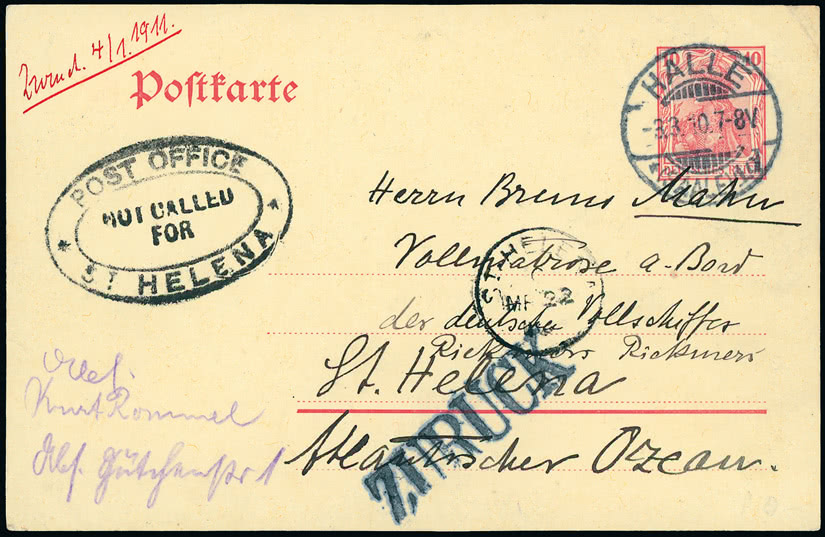 Zurück. 4/1.1911.
Postkarte
HALLE
-8.3.10.7-8V
10
POST OFFICE
NOT CALLED
FOR
ST HELENA
Herrn Bruno Mahn
Vollmatrose a. Bord
ST. HELENA
MR 22
der deutschen Vollschiffes
Rickmers Rickmers
St. Helena
Atlantischer Ozean.
ZURÜCK
Kurt Rommel
Abs. Gütchenstr 1